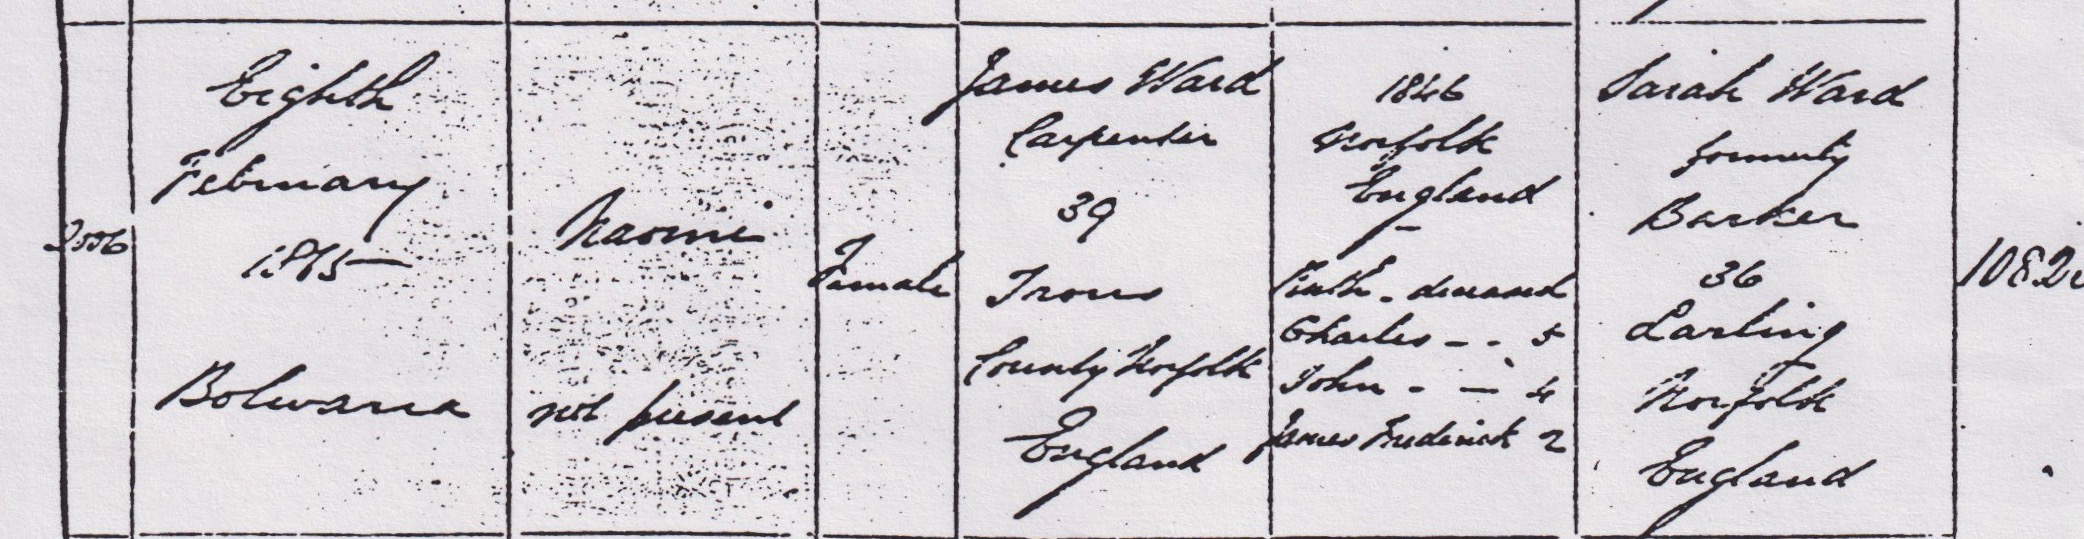 2006
Eighth
February
1865
Bolwarra
Naomi
not present
Female
James Ward
Carpenter
39
County Norfolk
England
1846
Norfolk
England
-
Ruth - deceased
Charles - - 5
John - - 4
James Frederick 2
Sarah Ward
formerly
Barker
36
Larling
Norfolk
England